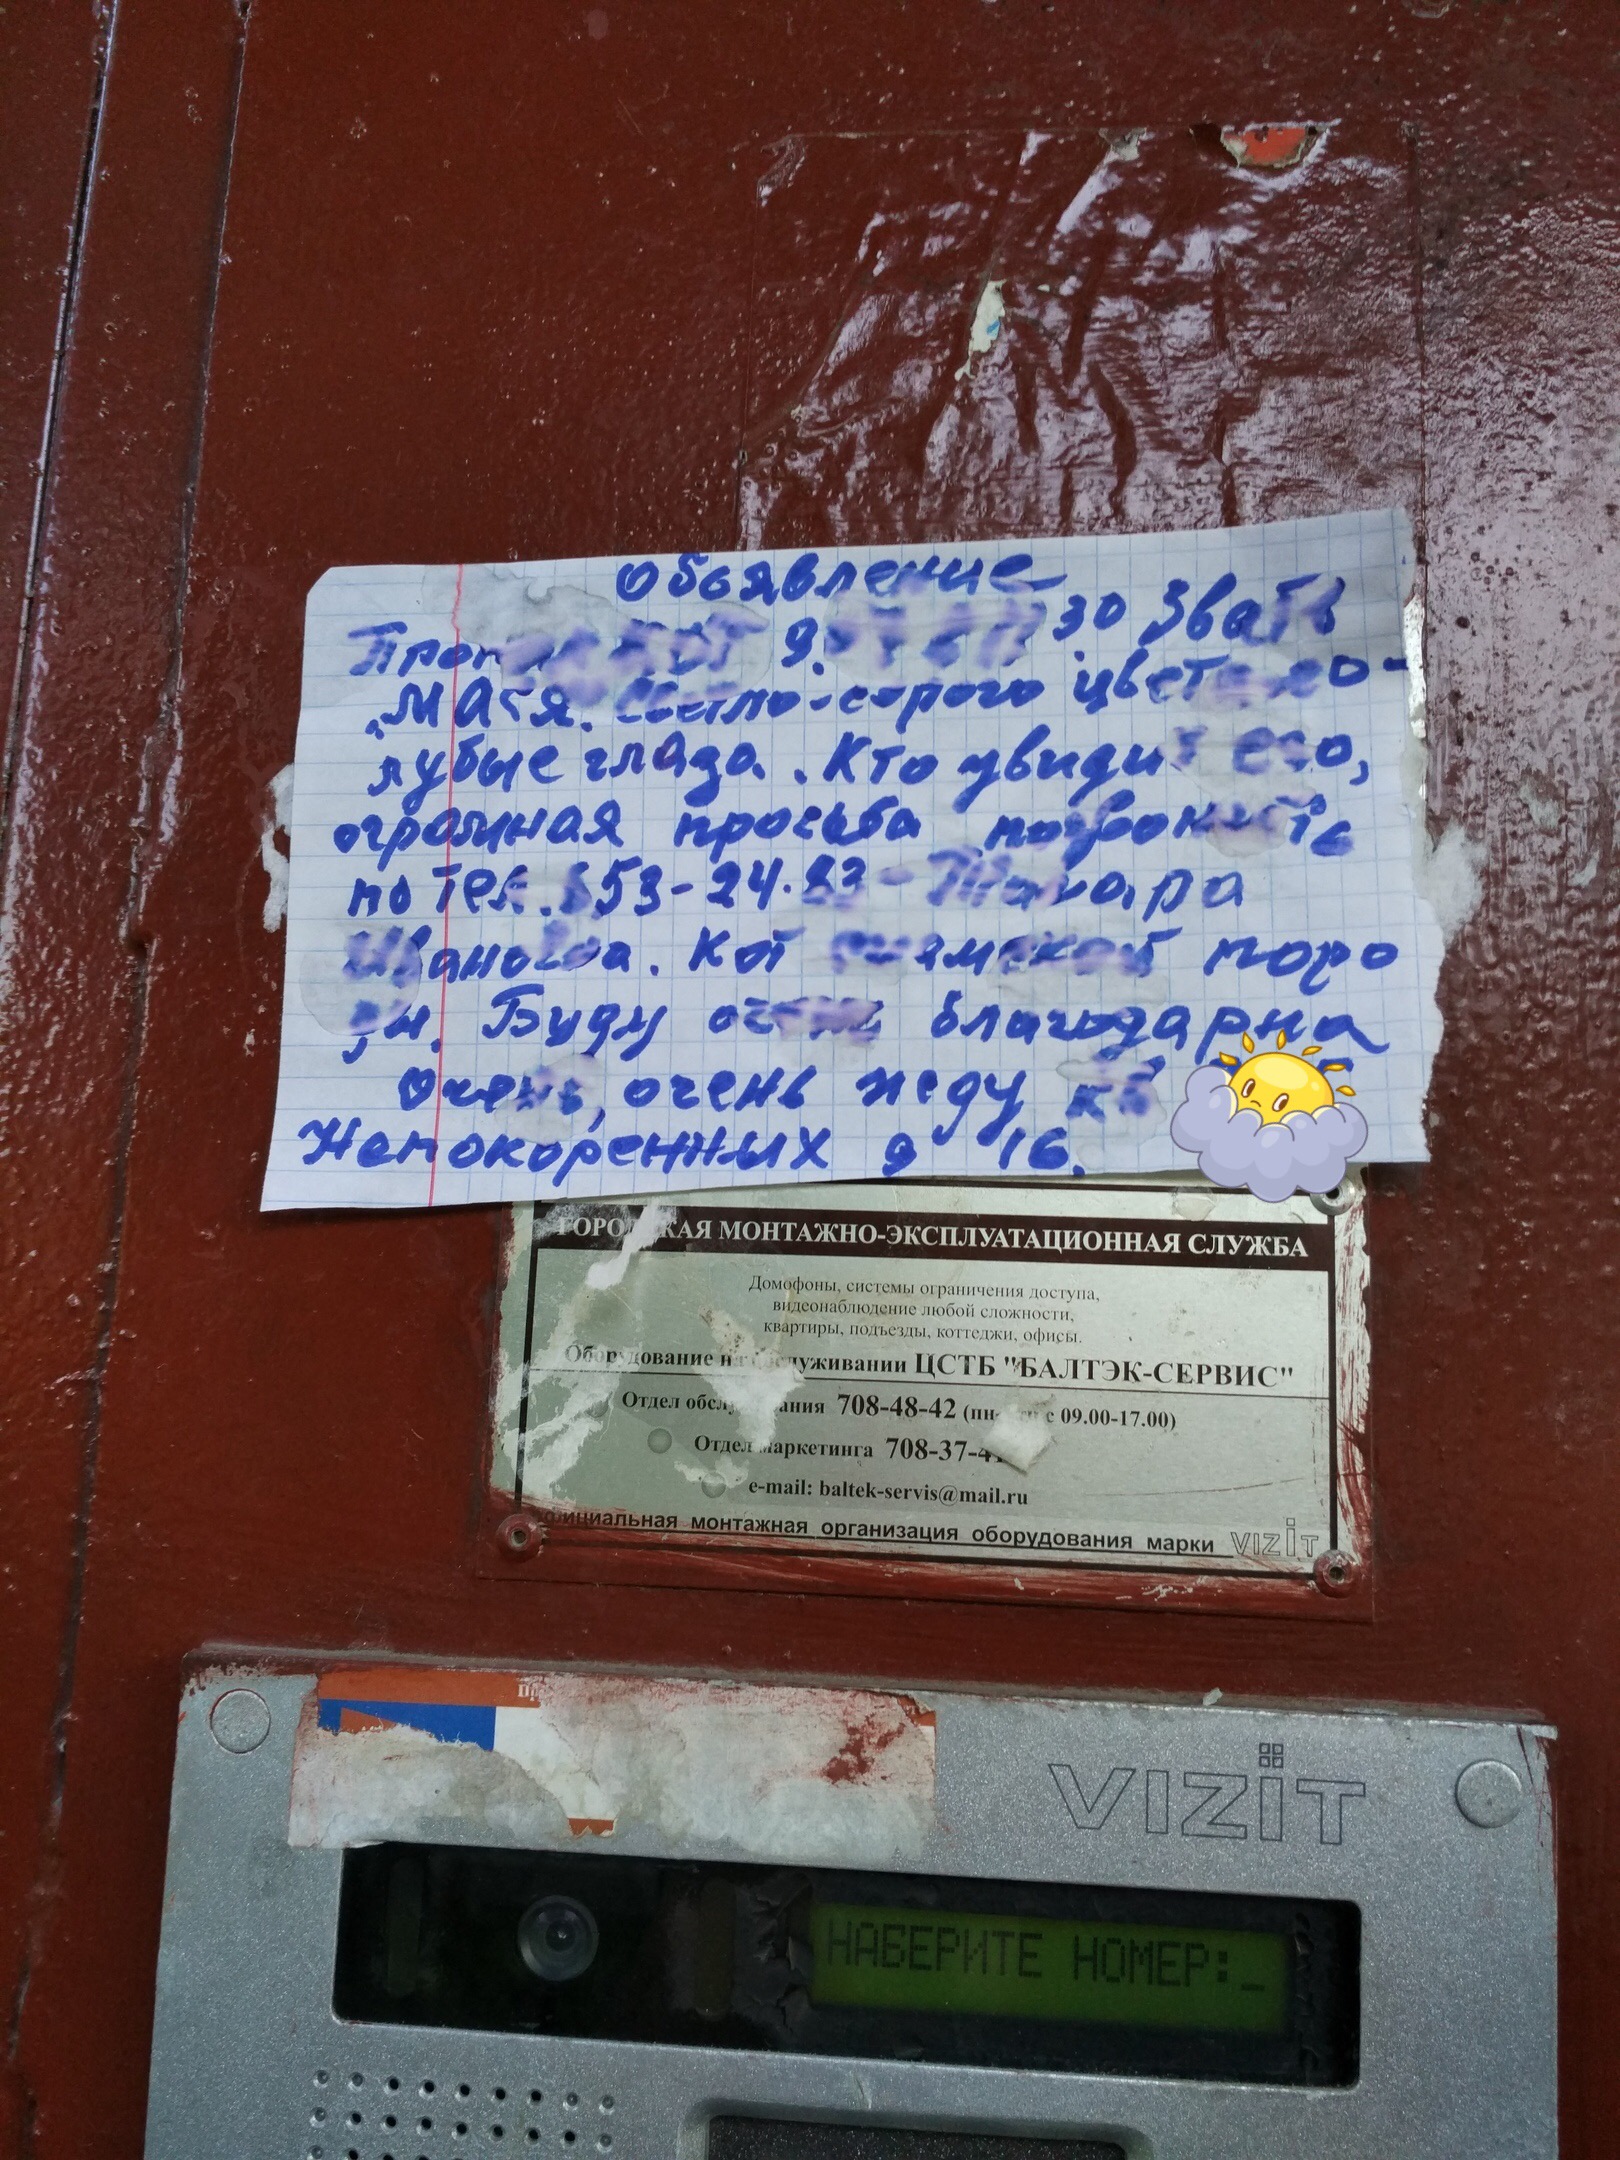 Обьявление
кот 30 Звать
Светло-серого цвета го-
лубые глаза. Кто увидит его,
огромная просьба позвонить
по тел. 553-24.
Ивановна. Кот сиамской поро
ды. Буду очень благодарна
Очень, очень жду кв
Непокоренных д 16.
ГОРОДСКАЯ МОНТАЖНО-ЭКСПЛУАТАЦИОННАЯ СЛУЖБА
Домофоны, системы ограничения доступа,
видеонаблюдение любой сложности,
квартиры, подъезды, коттеджи, офисы.
Оборудование на обслуживании ЦСТБ "БАЛТЭК-СЕРВИС"
Отдел обслуживания 708-48-42 с 09.00-17.00)
Отдел маркетинга 708-37-4
e-mail: baltek-servis@mail.ru
официальная монтажная организация оборудования марки VIZIT
VIZIT
НАБЕРИТЕ НОМЕР:_